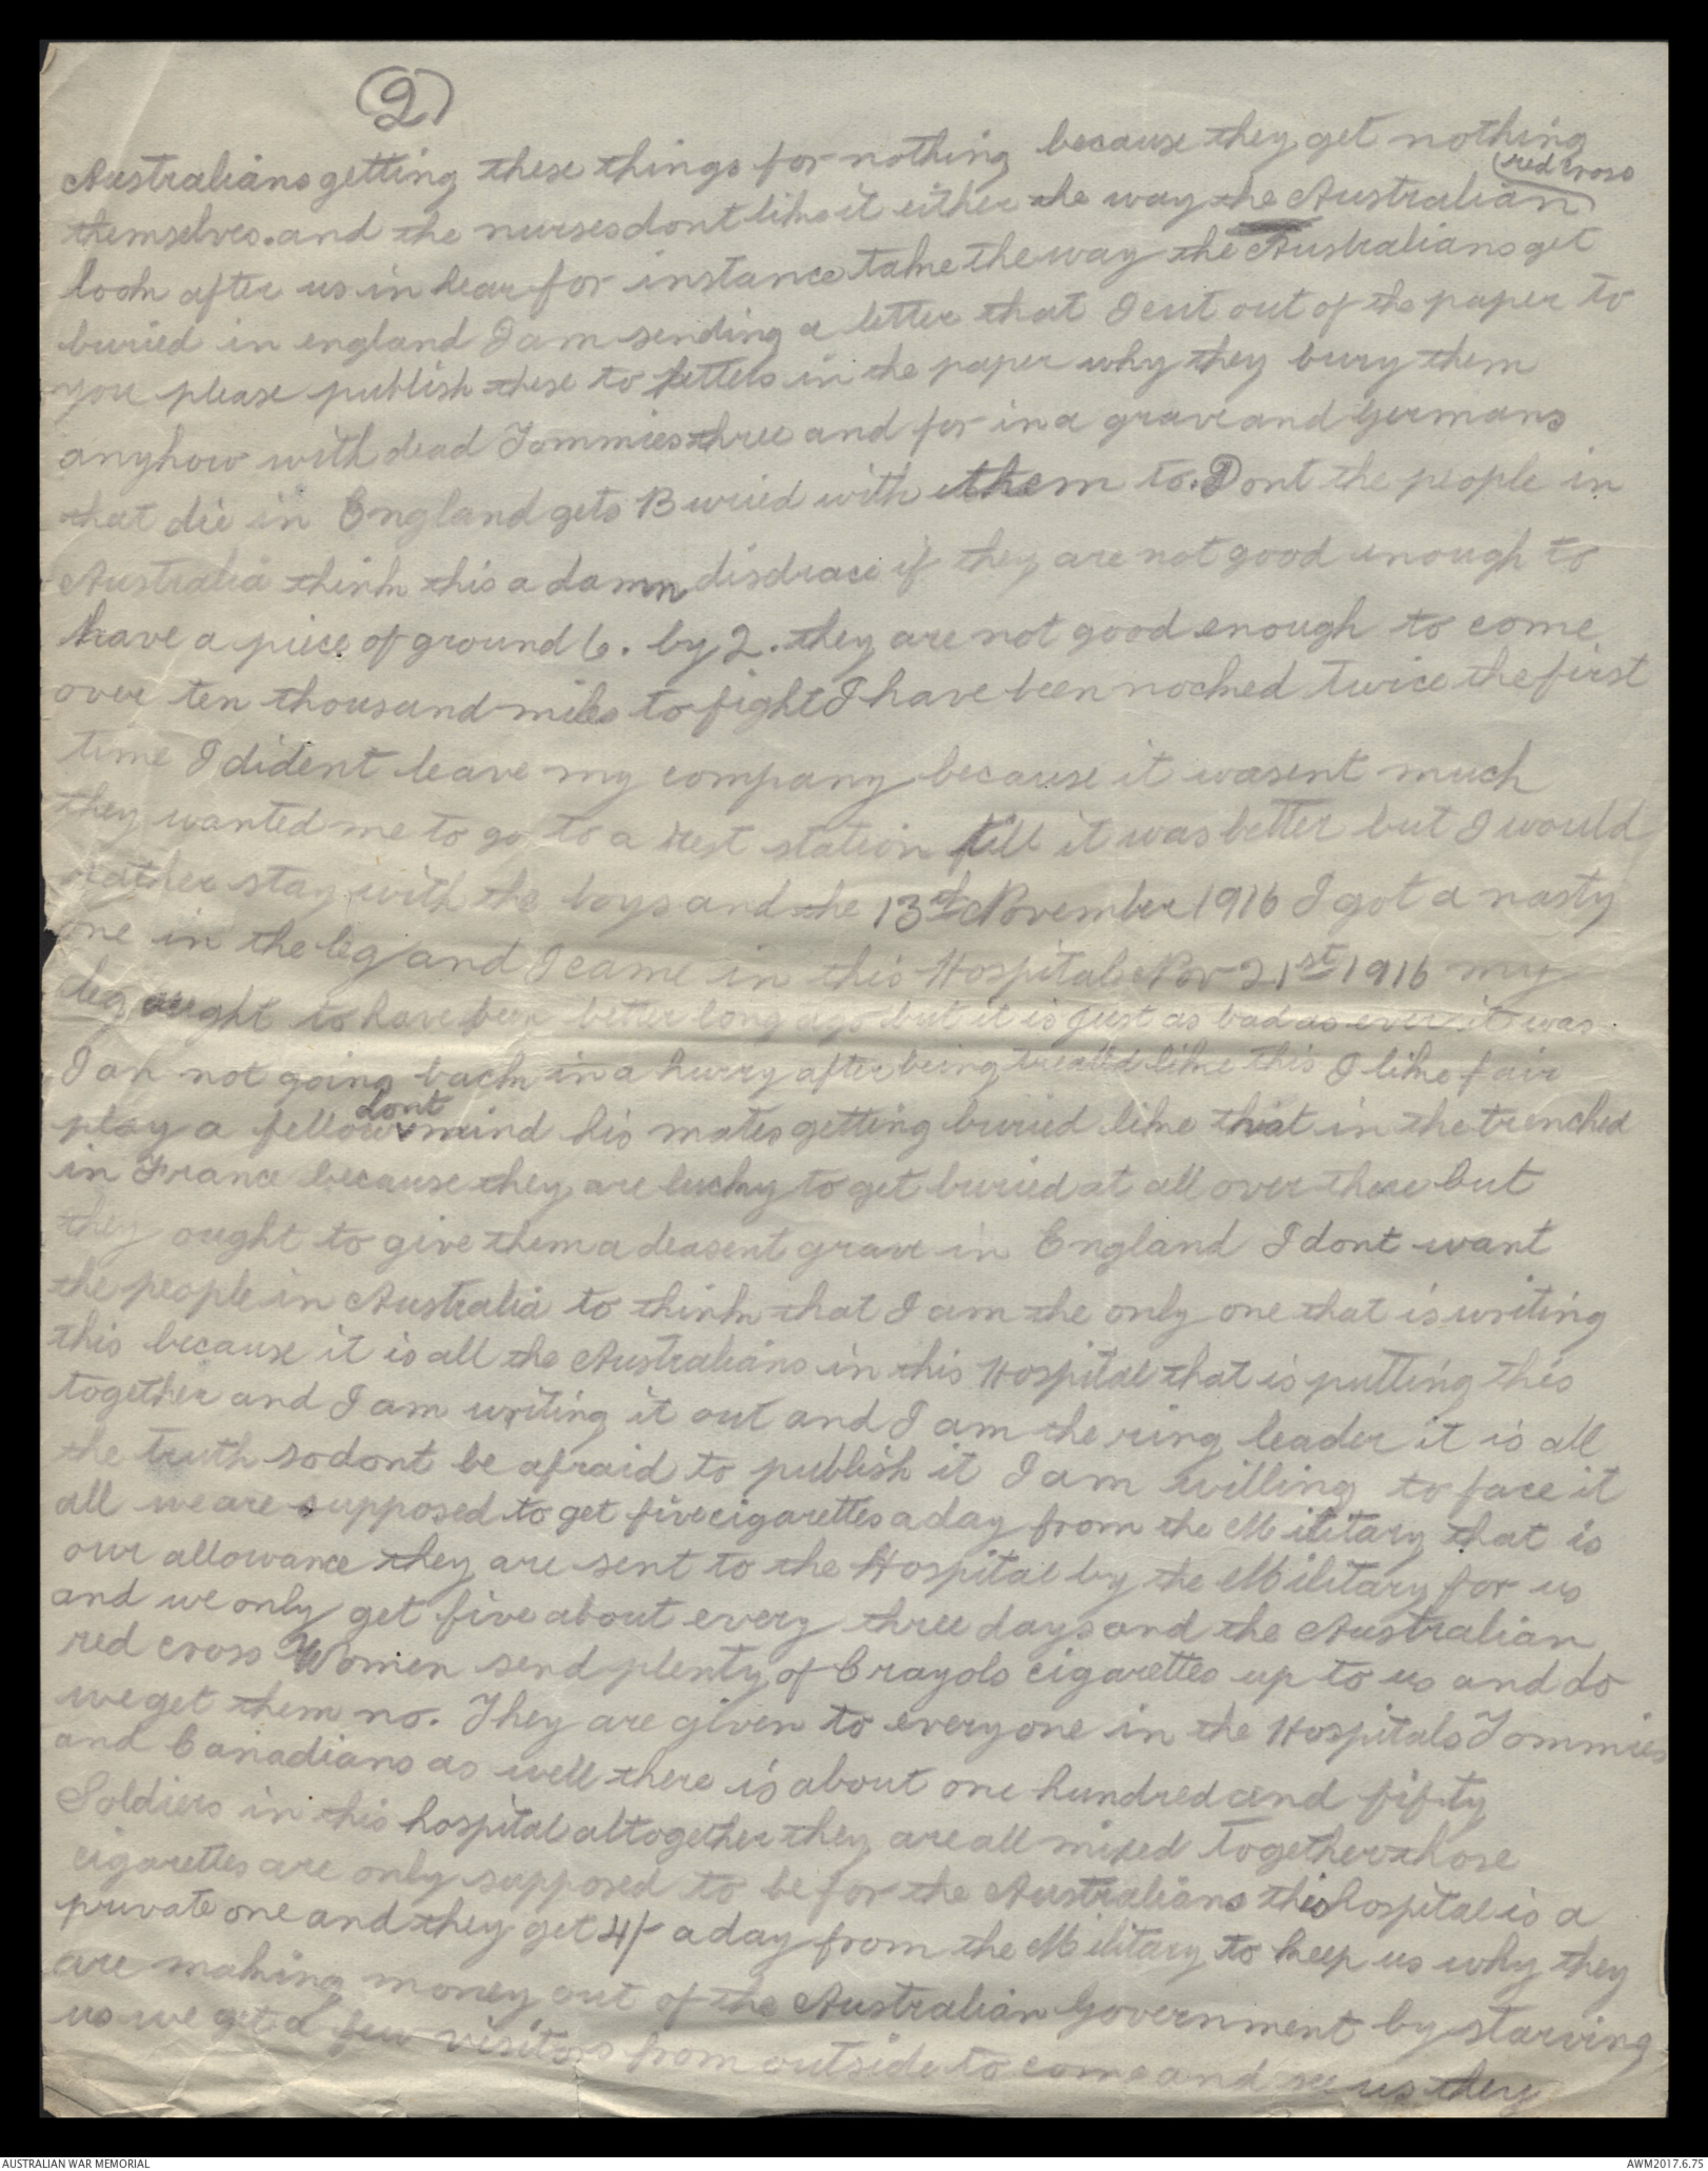 (2)
Australians getting these things for nothing because they get nothing
themselves. and the nurses dont like it either the way the Australian (red cross)
look after us in hear for instance take the way the Australians get
buried in england I am sending a letter that I cut out of the paper to
you please publish these to letters in the paper why they bury them
anyhow with dead Tommies three and for in a grave and Germans
that die in England gets Buried with them to. Dont the people in
Australia think this a damn disdrace if they are not good enough to
have a piece of ground 6. by 2. they are not good enough to come
over ten thousand miles to fight I have been nocked twice the first
time I dident leave my company because it wasent much
they wanted me to go to a rest station till it was better but I would
rather stay with the boys and the 13th November 1916 I got a nasty
one in the leg and I came in this Hospital Nov 21st 1916 my
leg aught to have been better long ago but it is just as bad as ever it was.
I an not going back in a hurry after being treated like this I like fair
play a fellow dont mind his mates getting buried like that in the trenched
in France because they are lucky to get buried at all over there but
they ought to give them a deasent grave in England I dont want
the people in Australia to think that I am the only one that is writing
this because it is all the Australians in this Hospital that is putting this
together and I am writing it out and I am the ring leader it is all
the truth so dont be afraid to publish it I am willing to face it
all we are supposed to get five cigarettes a day from the Military that is
our allowance they are sent to the Hospital by the Military for us
and we only get five about every three days and the Australian
red cross Women send plenty of Crayols cigarettes up to us and do
we get them no. They are given to everyone in the Hospitals Tommies
and Canadians as well there is about one hundred and fifty
Soldiers in this hospital altogether they are all mixed together those
cigarettes are only supposed to be for the Australians this hospital is a
private one and they get 4/- a day from the Military to keep us why they
are making money out of the Australian Government by starving
us we get a few visitors from outside to come and see us they
AUSTRALIAN WAR MEMORIAL
AWM2017.6.75